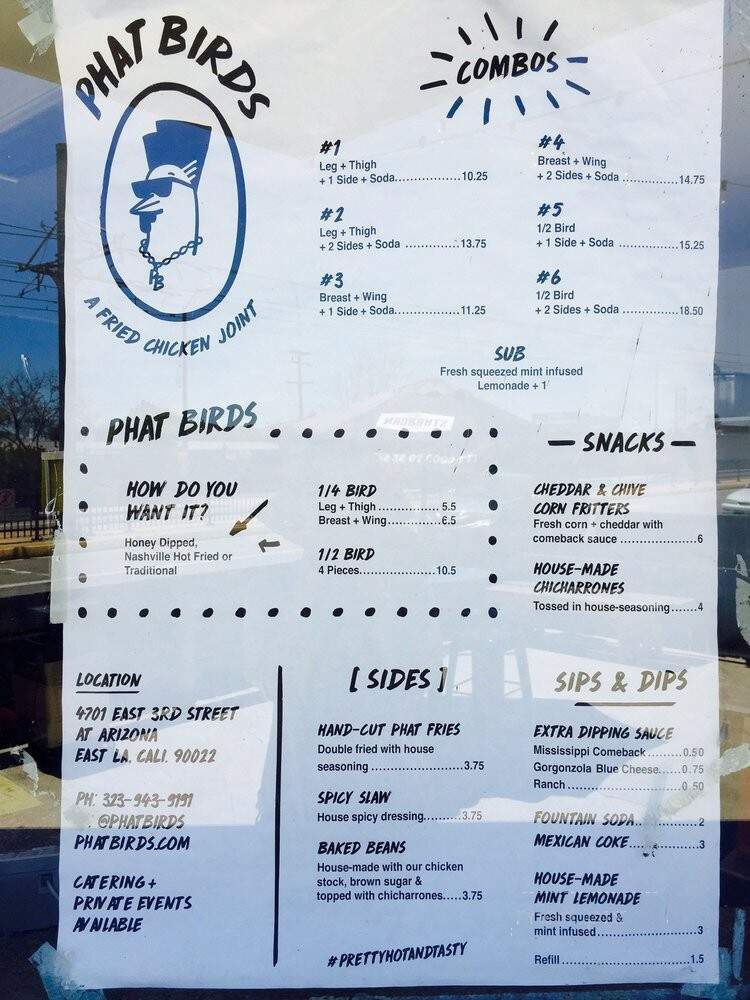 PHAT BIRDS
PB
A FRIED CHICKEN JOINT
COMBOS
#1
Leg + Thigh
+ 1 Side + Soda....................10.25
#2
Leg + Thigh
+ 2 Sides + Soda ................13.75
#3
Breast + Wing
+ 1 Side + Soda....................11.25
#4
Breast + Wing
+ 2 Sides + Soda ................14.75
#5
1/2 Bird
+ 1 Side + Soda ..................15.25
#6
1/2 Bird
+ 2 Sides + Soda .................18.50
SUB
Fresh squeezed mint infused
Lemonade + 1
PHAT BIRDS
HOW DO YOU
WANT IT?
Honey Dipped,
Nashville Hot Fried or
Traditional
1/4 BIRD
Leg + Thigh ................... 5.5
Breast + Wing.................6.5
1/2 BIRD
4 Pieces.......................10.5
— SNACKS —
CHEDDAR & CHIVE
CORN FRITTERS
Fresh corn + cheddar with
comeback sauce ........................6
HOUSE-MADE
CHICHARRONES
Tossed in house-seasoning.......4
LOCATION
4701 EAST 3RD STREET
AT ARIZONA
EAST LA, CALI. 90022
PH: 323-943-9191
@PHATBIRDS
PHATBIRDS.COM
CATERING +
PRIVATE EVENTS
AVAILABLE
[ SIDES ]
HAND-CUT PHAT FRIES
Double fried with house
seasoning ...........................3.75
SPICY SLAW
House spicy dressing..........3.75
BAKED BEANS
House-made with our chicken
stock, brown sugar &
topped with chicharrones.....3.75
#PRETTYHOTANDTASTY
SIPS & DIPS
EXTRA DIPPING SAUCE
Mississippi Comeback .........0.50
Gorgonzola Blue Cheese......0.75
Ranch ...................................0.50
FOUNTAIN SODA..................2
MEXICAN COKE....................3
HOUSE-MADE
MINT LEMONADE
Fresh squeezed &
mint infused.............................3
Refill ......................................1.5